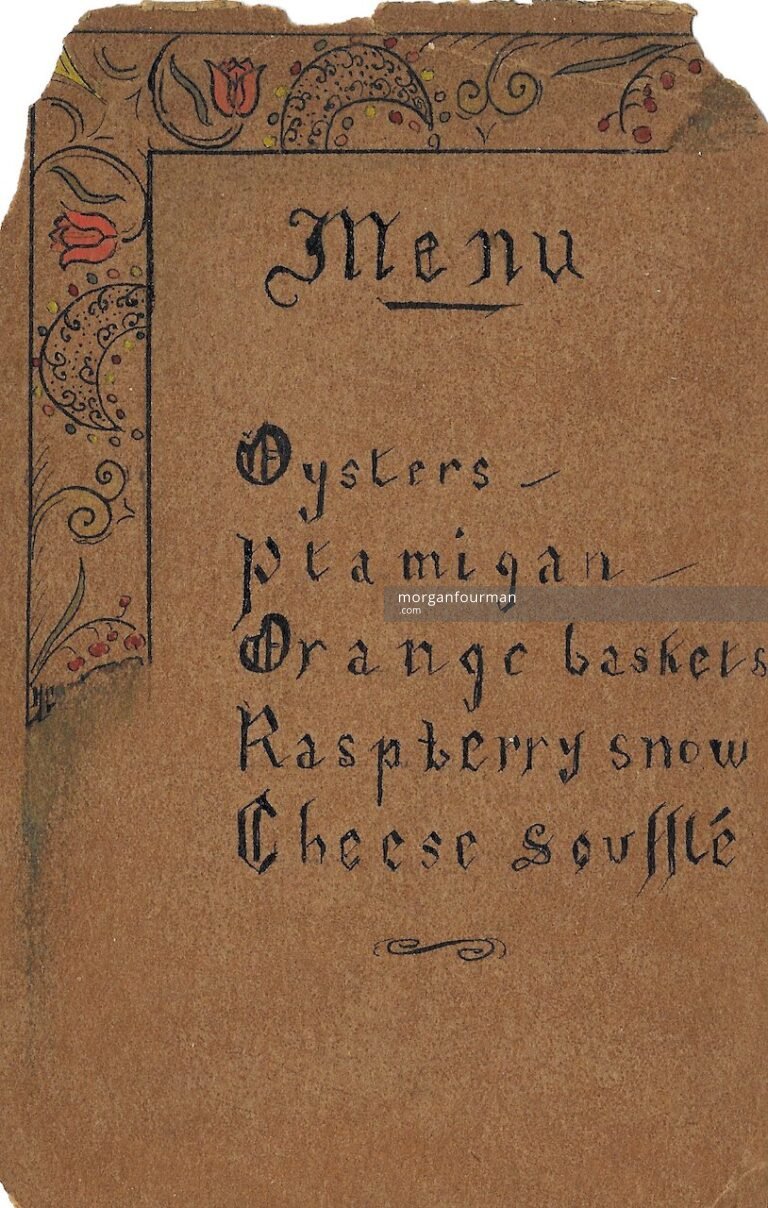 Menu
Oysters –
Ptamigan –
morganfourman
.com
Orange baskets
Raspberry snow
Cheese Soufflé